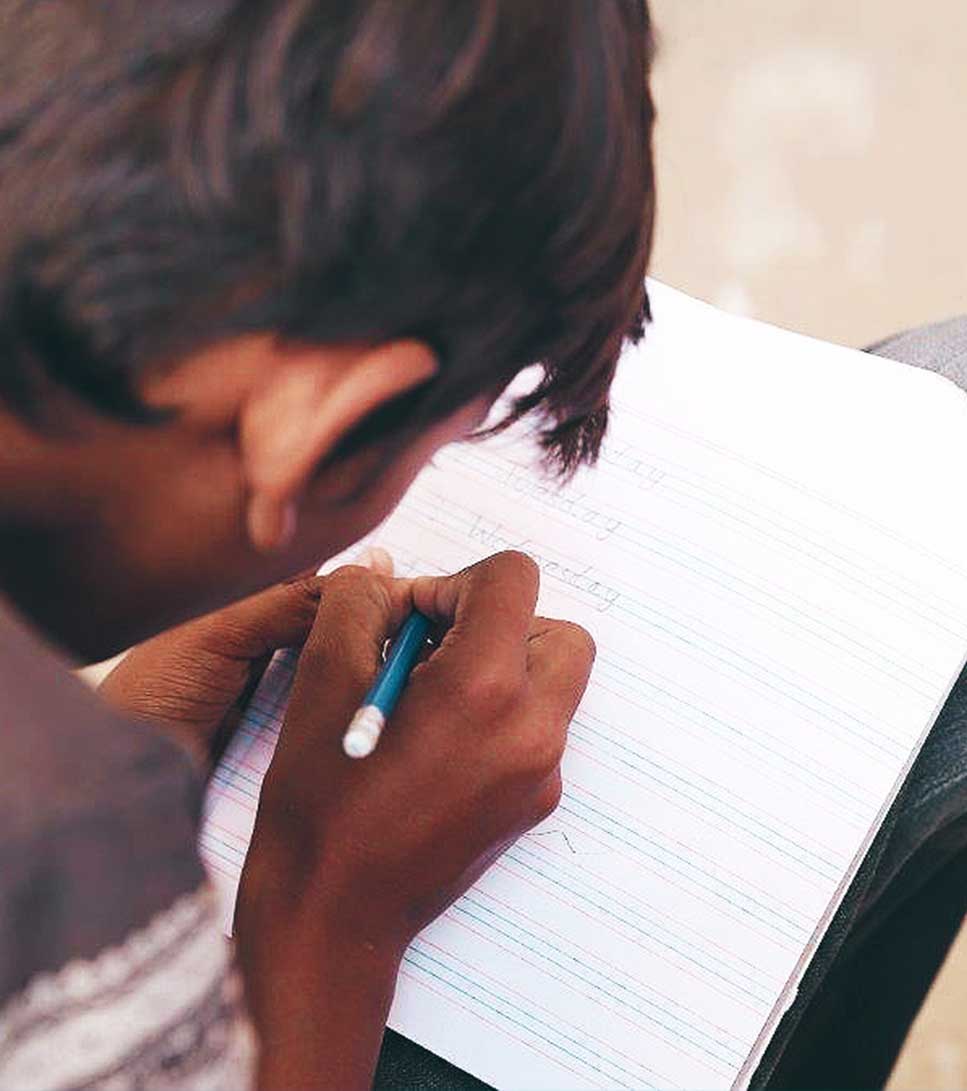 day
Tuesday
Wednesday